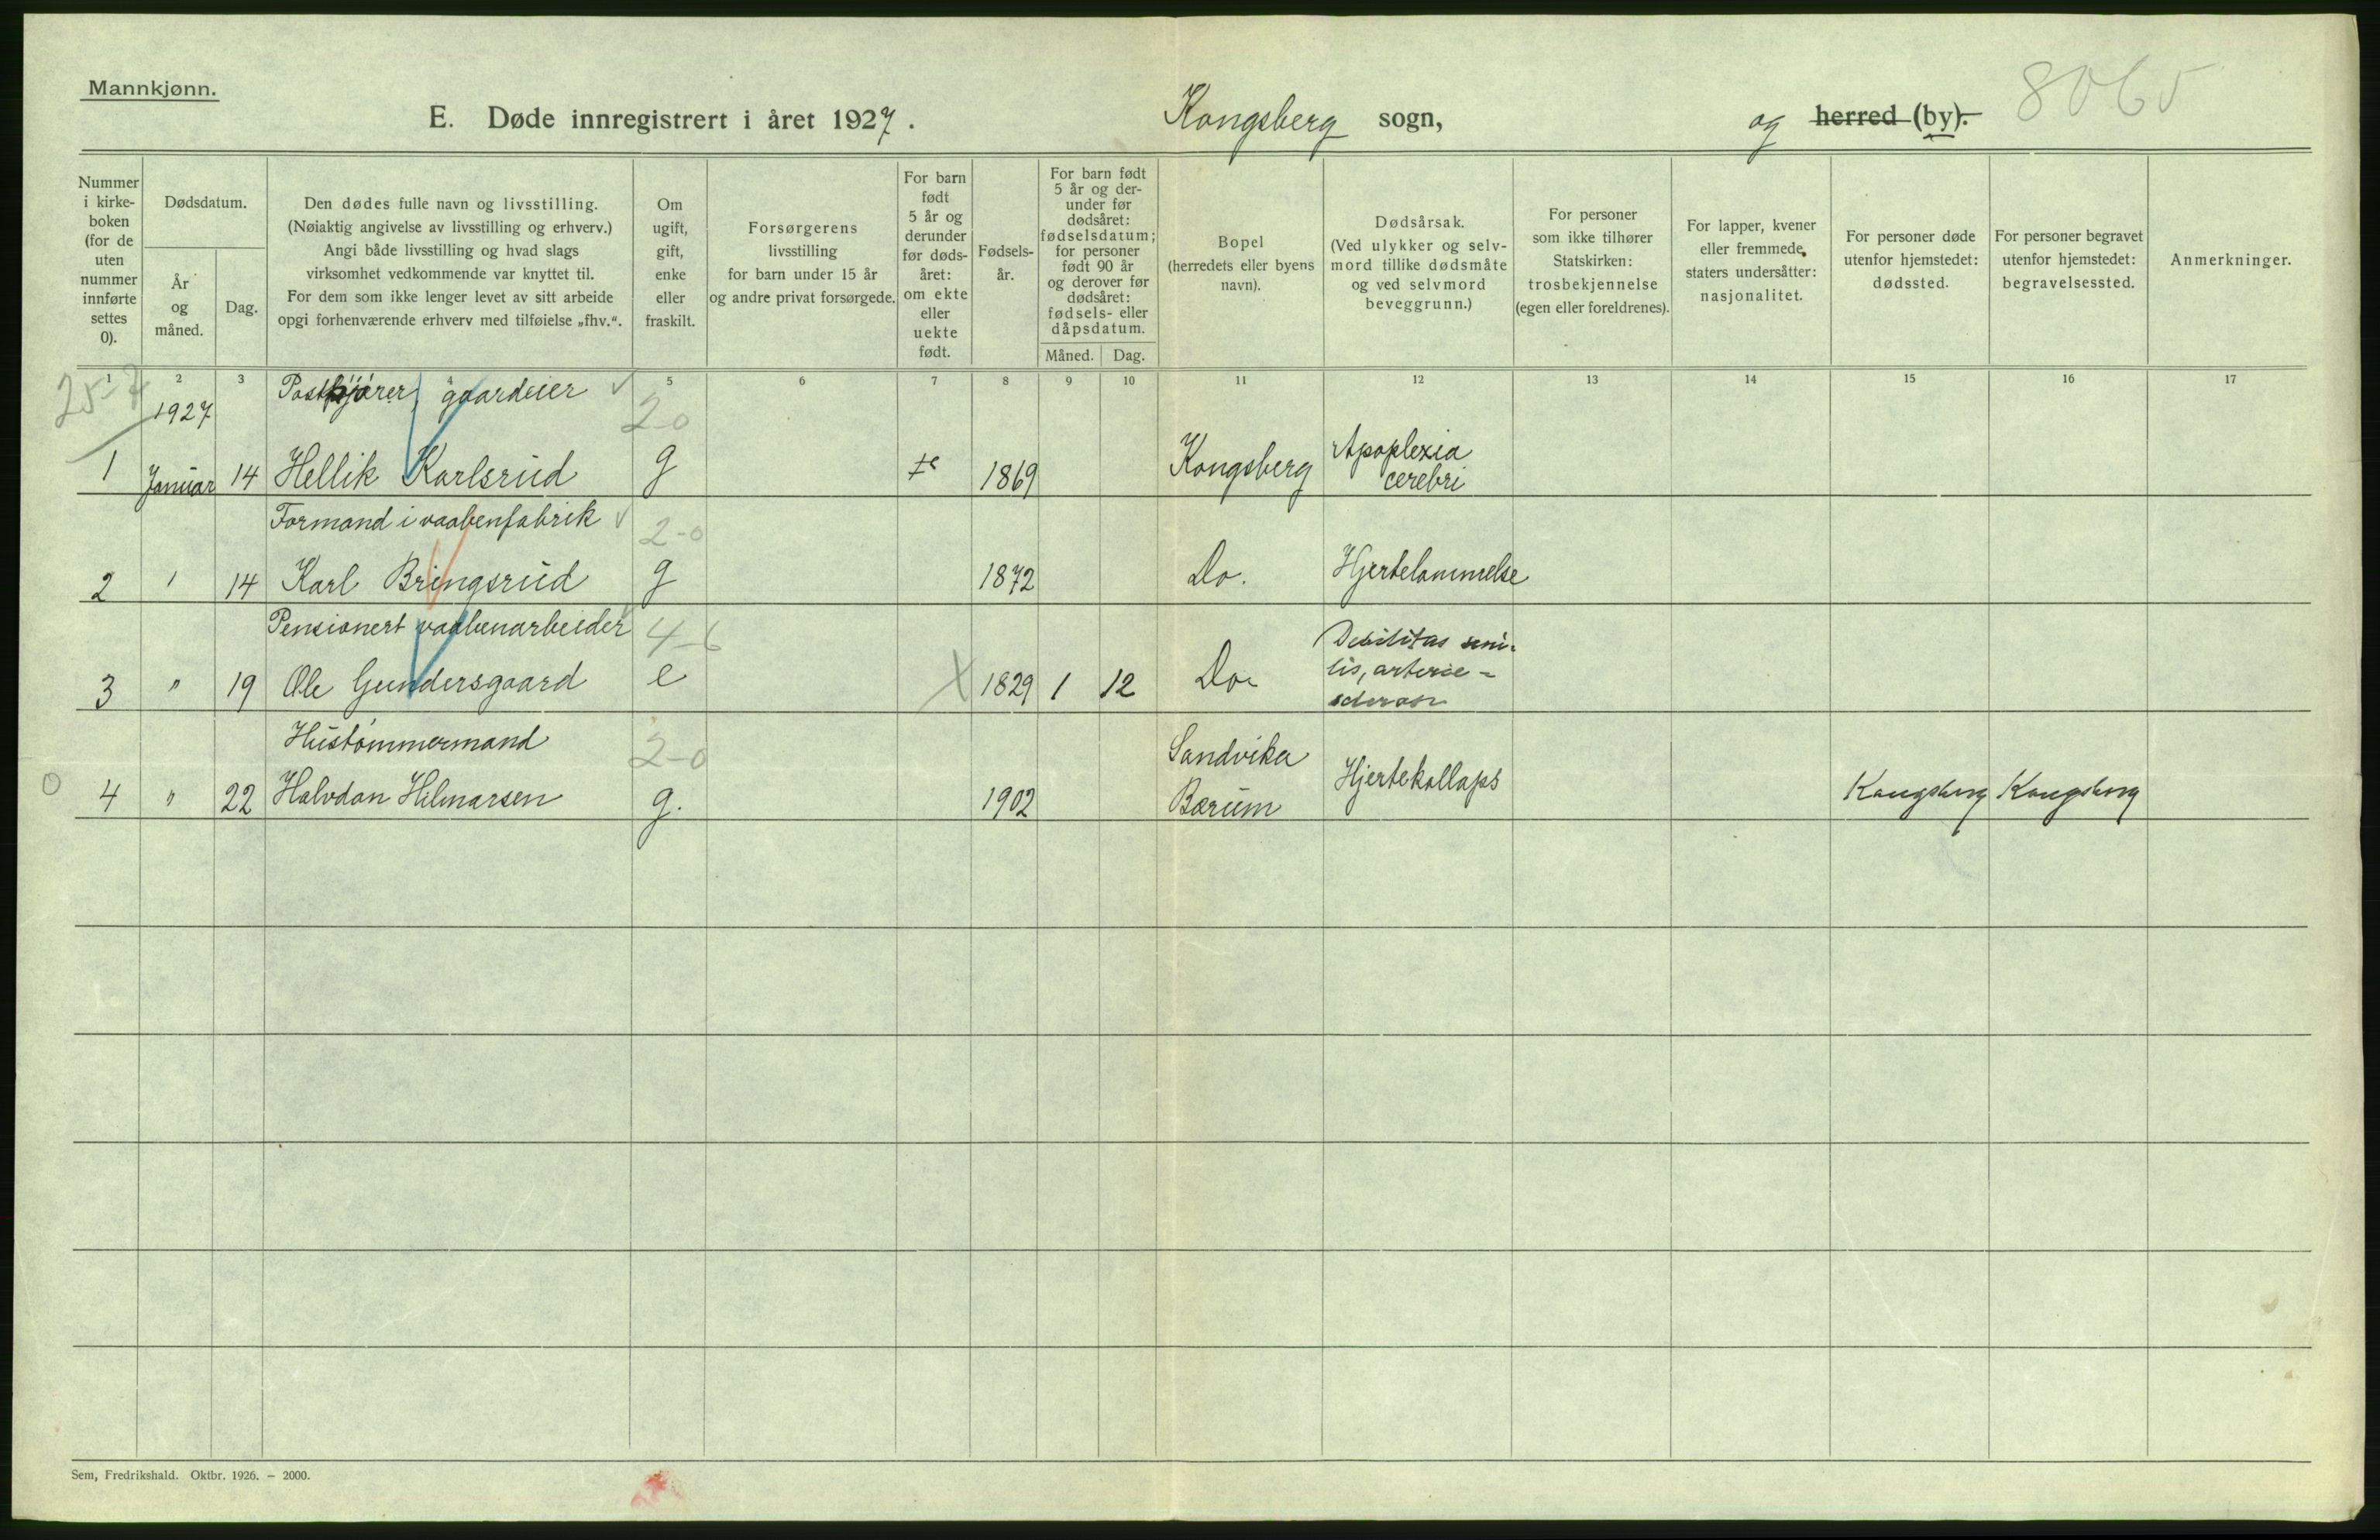 Mannkjønn.
8065
E. Døde innregistrert i året 1927. Kongsberg sogn, og herred (by).
Nummer
i kirke-
boken
(for de
uten
nummer
innførte
settes
0).
Dødsdatum.
År
og
måned.
Dag.
Den dødes fulle navn og livsstilling.
(Nøiaktig angivelse av livsstilling og erhverv.)
Angi både livsstilling og hvad slags
virksomhet vedkommende var knyttet til.
For dem som ikke lenger levet av sitt arbeide
opgi forhenværende erhverv med tilføielse „fhv.“.
Om
ugift,
gift,
enke
eller
fraskilt.
Forsørgerens
livsstilling
for barn under 15 år
og andre privat forsørgede.
For barn
født
5 år og
derunder
før døds-
året:
om ekte
eller
uekte
født.
Fødsels-
år.
For barn født
5 år og der-
under før
dødsåret:
fødselsdatum;
for personer
født 90 år
og derover før
dødsåret:
fødsels- eller
dåpsdatum.
Måned. Dag.
Bopel
(herredets eller byens
navn).
Dødsårsak.
(Ved ulykker og selv-
mord tillike dødsmåte
og ved selvmord
beveggrunn.)
For personer
som ikke tilhører
Statskirken:
trosbekjennelse
(egen eller foreldrenes).
For lapper, kvener
eller fremmede
staters undersåtter:
nasjonalitet.
For personer døde
utenfor hjemstedet:
dødssted.
For personer begravet
utenfor hjemstedet:
begravelsessted.
Anmerkninger.
1 2 3 4 5 6 7 8 9 10 11 12 13 14 15 16 17
25-7
1927 Postkjører, gaardeier 2-0
1 Januar 14 Hellik Karlsrud g 1869 Kongsberg Apoplexia
cerebri
Formand i vaabenfabrik 2-0
2 " 14 Karl Bringsrud g 1872 Do. Hjertelammelse
Pensionert vaabenarbeider 4-6
3 " 19 Ole Gundersgaard e X 1829 1 12 Do. Debilitas seni-
lis, arterie-
sclerose
Hustømmermand 2-0
0 4 " 22 Halvdan Hilmarsen g. 1902 Sandvika
Bærum Hjertekollaps Kongsberg Kongsberg
Sem, Fredrikshald. Oktbr. 1926. – 2000.